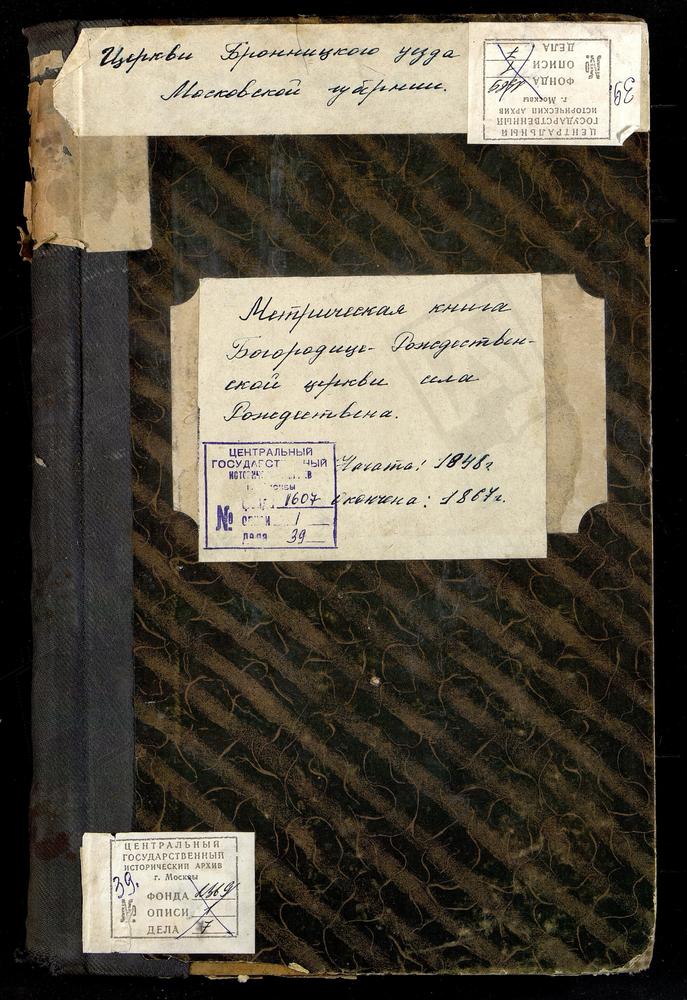 Церкви Бронницкого уезда
Московской губернии.
ЦЕНТРАЛЬНЫЙ
ГОСУДАРСТВЕННЫЙ
ИСТОРИЧЕСКИЙ АРХИВ
г. Москвы
ФОНДА
ОПИСИ
ДЕЛА
39.
Метрическая книга
Богородице-Рождествен-
ской церкви села
Рождествена.
Начата: 1848г
Окончена: 1867г.
ЦЕНТРАЛЬНЫЙ
ГОСУДАРСТ ННЫЙ
№
1607
ОПИСИ 1
39
ЦЕНТРАЛЬНЫЙ
ГОСУДАРСТВЕННЫЙ
ИСТОРИЧЕСКИЙ АРХИВ
г. Москвы
39.
№
ФОНДА 1369
ОПИСИ 1
ДЕЛА 7